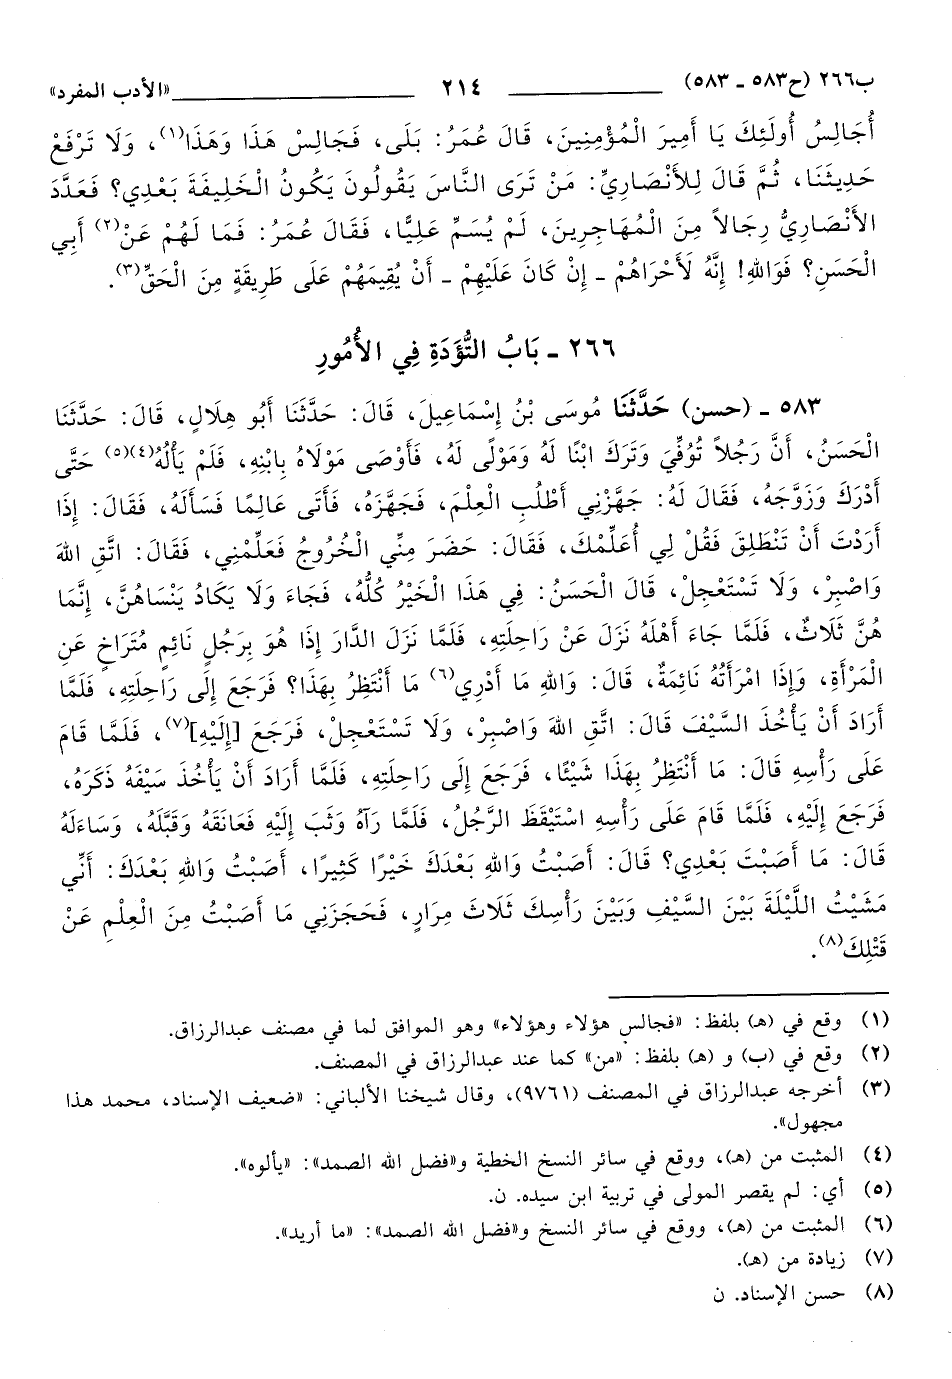 ب٢٦٦ (ح٥٨٣ ـ ٥٨٣) ٢١٤ «الأدب المفرد»
أُجَالِسُ أُولَئِكَ يَا أَمِيرَ الْمُؤْمِنِينَ، قَالَ عُمَرُ: بَلَى، فَجَالِسْ هَذَا وَهَذَا(١)، وَلَا تَرْفَعْ
حَدِيثَنَا، ثُمَّ قَالَ لِلأَنْصَارِيِّ: مَنْ تَرَى النَّاسَ يَقُولُونَ يَكُونُ الْخَلِيفَةَ بَعْدِي؟ فَعَدَّدَ
الأَنْصَارِيُّ رِجَالاً مِنَ الْمُهَاجِرِينَ، لَمْ يُسَمِّ عَلِيًّا، فَقَالَ عُمَرُ: فَمَا لَهُمْ عَنْ(٢) أَبِي
الْحَسَنِ؟ فَوَاللهِ! إِنَّهُ لَأَحْرَاهُمْ ـ إِنْ كَانَ عَلَيْهِمْ ـ أَنْ يُقِيمَهُمْ عَلَى طَرِيقَةٍ مِنَ الْحَقِّ(٣).
٢٦٦ ـ بَابُ التُّؤَدَةِ فِي الأُمُورِ
٥٨٣ ـ (حسن) حَدَّثَنَا مُوسَى بْنُ إِسْمَاعِيلَ، قَالَ: حَدَّثَنَا أَبُو هِلَالٍ، قَالَ: حَدَّثَنَا
الْحَسَنُ، أَنَّ رَجُلاً تُوُفِّيَ وَتَرَكَ ابْنًا لَهُ وَمَوْلًى لَهُ، فَأَوْصَى مَوْلَاهُ بِابْنِهِ، فَلَمْ يَأْلُهُ(٤)(٥) حَتَّى
أَدْرَكَ وَزَوَّجَهُ، فَقَالَ لَهُ: جَهِّزْنِي أَطْلُبِ الْعِلْمَ، فَجَهَّزَهُ، فَأَتَى عَالِمًا فَسَأَلَهُ، فَقَالَ: إِذَا
أَرَدْتَ أَنْ تَنْطَلِقَ فَقُلْ لِي أُعَلِّمْكَ، فَقَالَ: حَضَرَ مِنِّي الْخُرُوجُ فَعَلِّمْنِي، فَقَالَ: اتَّقِ اللهَ
وَاصْبِرْ، وَلَا تَسْتَعْجِلْ، قَالَ الْحَسَنُ: فِي هَذَا الْخَيْرُ كُلُّهُ، فَجَاءَ وَلَا يَكَادُ يَنْسَاهُنَّ، إِنَّمَا
هُنَّ ثَلَاثٌ، فَلَمَّا جَاءَ أَهْلَهُ نَزَلَ عَنْ رَاحِلَتِهِ، فَلَمَّا نَزَلَ الدَّارَ إِذَا هُوَ بِرَجُلٍ نَائِمٍ مُتَرَاخٍ عَنِ
الْمَرْأَةِ، وَإِذَا امْرَأَتُهُ نَائِمَةٌ، قَالَ: وَاللهِ مَا أَدْرِي(٦) مَا أَنْتَظِرُ بِهَذَا؟ فَرَجَعَ إِلَى رَاحِلَتِهِ، فَلَمَّا
أَرَادَ أَنْ يَأْخُذَ السَّيْفَ قَالَ: اتَّقِ اللهَ وَاصْبِرْ، وَلَا تَسْتَعْجِلْ، فَرَجَعَ [إِلَيْهِ](٧)، فَلَمَّا قَامَ
عَلَى رَأْسِهِ قَالَ: مَا أَنْتَظِرُ بِهَذَا شَيْئًا، فَرَجَعَ إِلَى رَاحِلَتِهِ، فَلَمَّا أَرَادَ أَنْ يَأْخُذَ سَيْفَهُ ذَكَرَهُ،
فَرَجَعَ إِلَيْهِ، فَلَمَّا قَامَ عَلَى رَأْسِهِ اسْتَيْقَظَ الرَّجُلُ، فَلَمَّا رَآهُ وَثَبَ إِلَيْهِ فَعَانَقَهُ وَقَبَّلَهُ، وَسَاءَلَهُ
قَالَ: مَا أَصَبْتَ بَعْدِي؟ قَالَ: أَصَبْتُ وَاللهِ بَعْدَكَ خَيْرًا كَثِيرًا، أَصَبْتُ وَاللهِ بَعْدَكَ: أَنِّي
مَشَيْتُ اللَّيْلَةَ بَيْنَ السَّيْفِ وَبَيْنَ رَأْسِكَ ثَلَاثَ مِرَارٍ، فَحَجَزَنِي مَا أَصَبْتُ مِنَ الْعِلْمِ عَنْ
قَتْلِكَ(٨).
(١) وقع في (هـ) بلفظ: «فجالس هؤلاء وهؤلاء» وهو الموافق لما في مصنف عبدالرزاق.
(٢) وقع في (ب) و (هـ) بلفظ: «من» كما عند عبدالرزاق في المصنف.
(٣) أخرجه عبدالرزاق في المصنف (٩٧٦١)، وقال شيخنا الألباني: «ضعيف الإسناد، محمد هذا
مجهول».
(٤) المثبت من (هـ)، ووقع في سائر النسخ الخطية و«فضل الله الصمد»: «يألوه».
(٥) أي: لم يقصر المولى في تربية ابن سيده. ن.
(٦) المثبت من (هـ)، ووقع في سائر النسخ و«فضل الله الصمد»: «ما أريد».
(٧) زيادة من (هـ).
(٨) حسن الإسناد. ن